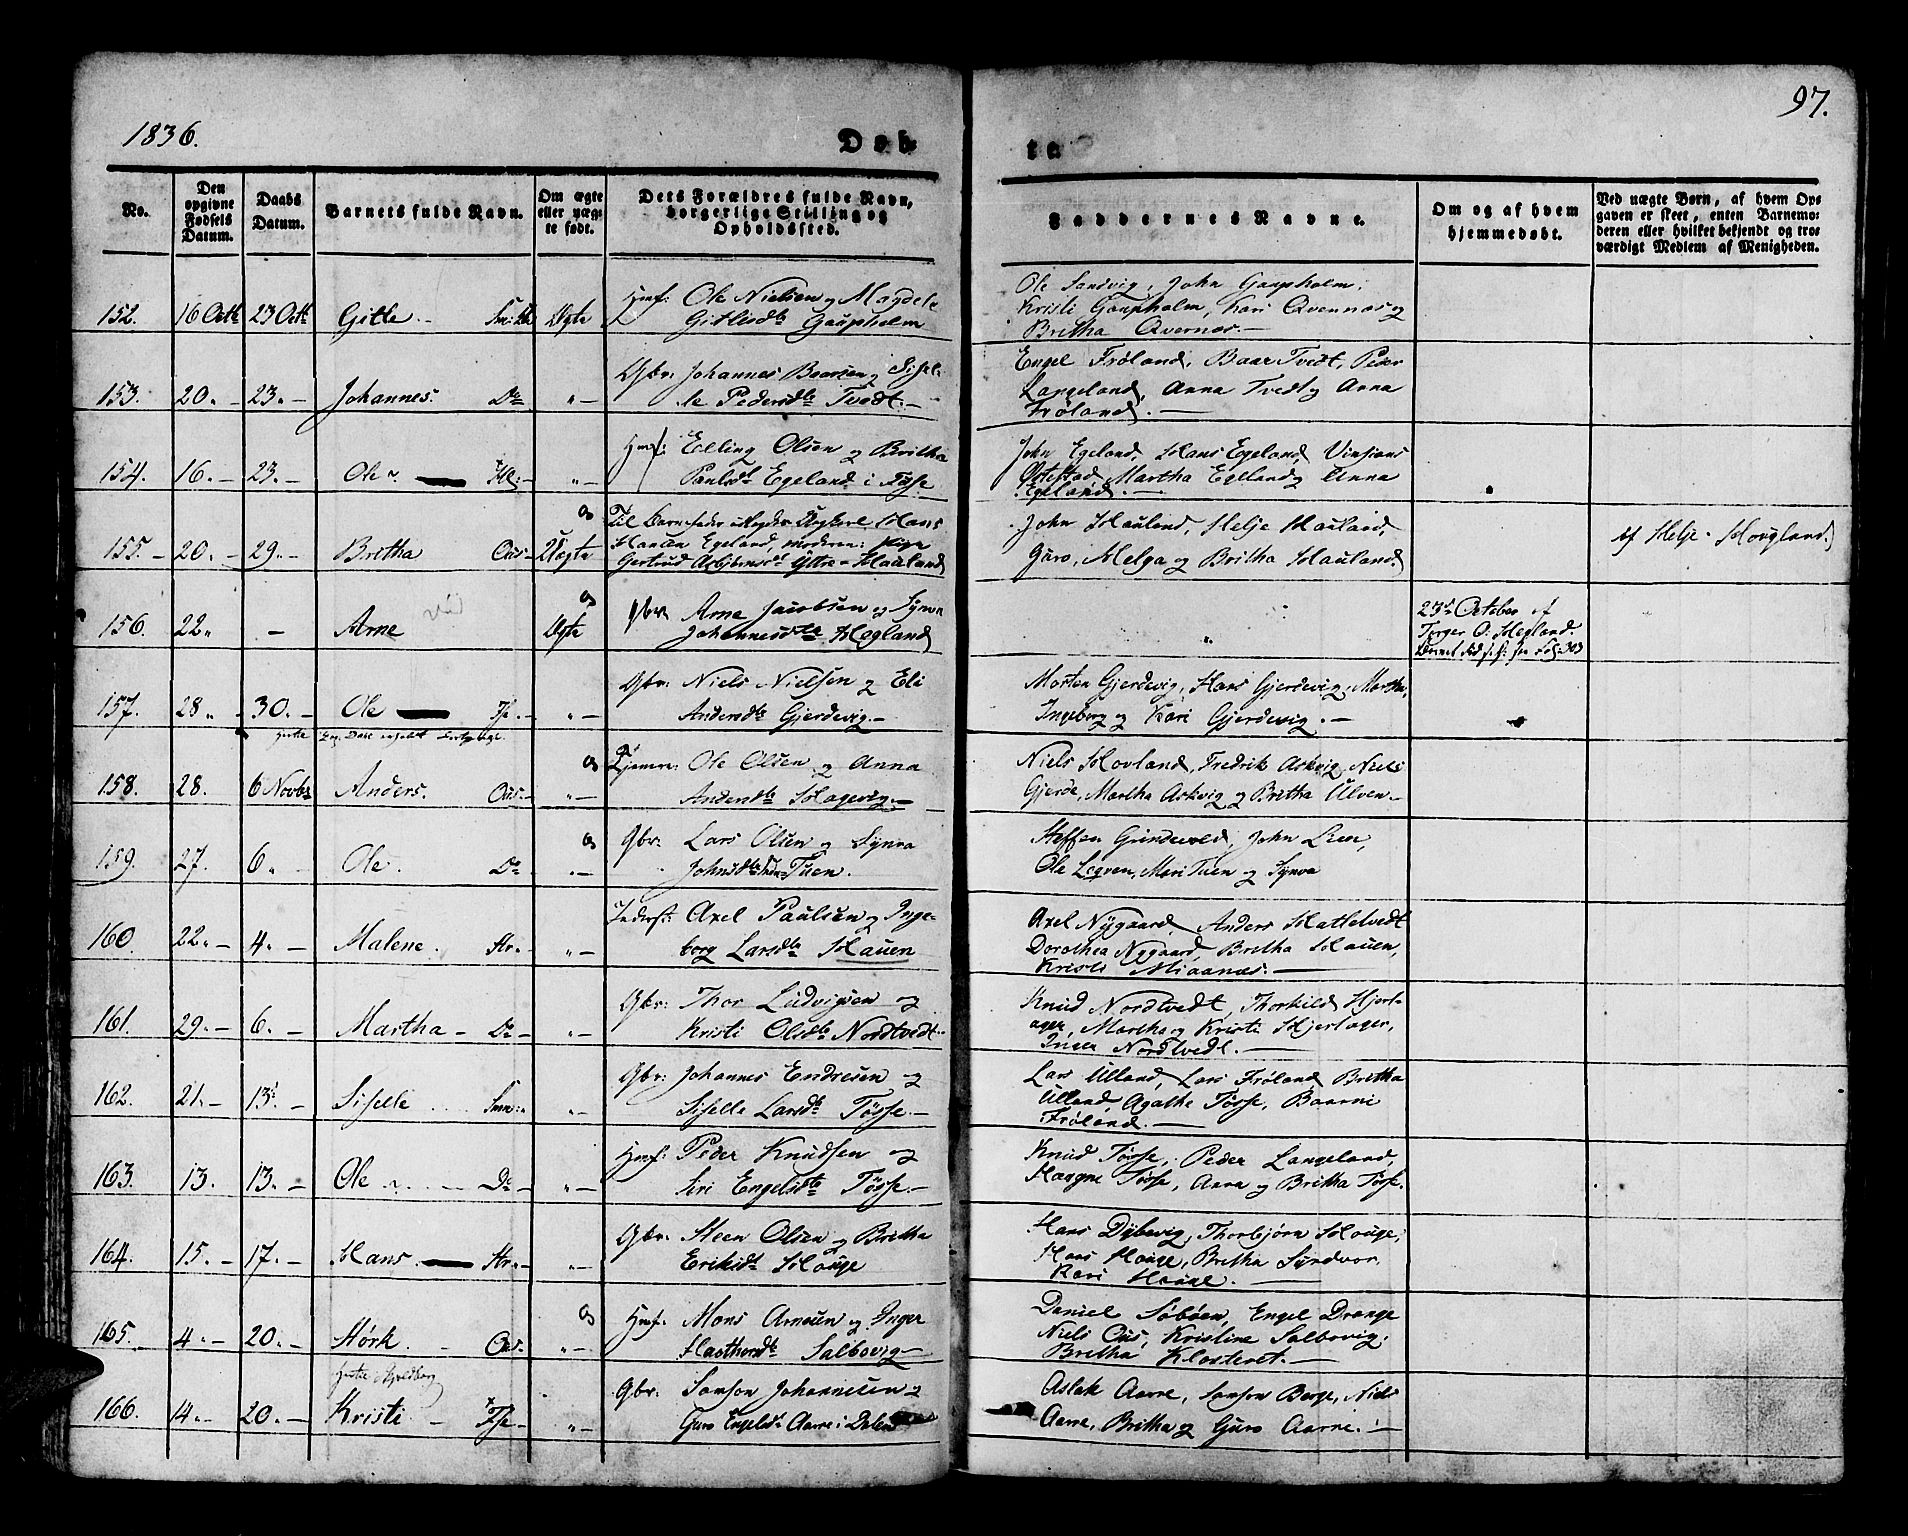 1836.
Døb
te
97.
No.
Den opgivne Fødsels Datum.
Daabs Datum.
Barnets fulde Navn.
Om ægte eller uægte født.
Dets Forældres fulde Navn, borgerlige Stilling og Opholdssted.
Faddernes Navne.
Om og af hvem hjemmedøbt.
Ved uægte Børn, af hvem Opgaven er skeet, enten Barnemoderen eller hvilket bekjendt og troværdigt Medlem af Menigheden.
152. 16 Octb 23 Octb Gitle Ægte Hmf: Ole Nielsen og Magdele
Gitlesdtr Gaupholm
Ole Sandvig, John Gaupholm,
Kristi Gaupholm, Kari Qvernæs og
Britha Qvernæs.
153. 20. 23. Johannes. Do " Gbr: Johannes Baarsen og Sisel-
le Pedersdtr Tvedt.
Engel Frøland, Baar Tvedt, Peder
Langeland, Anna Tvedt og Anna
Frøland.
154. 16. 23. Ole " Hmf: Elling Olsen og Britha
Paulsdtr Egeland i Fusse
John Egeland, Hans Egeland,
Martha Egeland og Anna
Egeland.
155. 20. 29. Bretha Ous Uægte Til Barnefader Hans
Hansen Egeland, moderen: Pige
Gertrud Asbjørnsdt Ytre-Haaland
John Hauland, Helje Hauland,
Guro, Helga og Britha Hauland.
Af Helje Hougland.
156. 22 - Arne Ægte Gbr: Arne Jacobsen og Synva
Johannesdtr Hegland
"
23de October af
Torger O. Hegland.
157. 28 30. Ole " Gbr: Niels Nielsen og Eli
Andersdtr Gjerdevig.
Morten Gjerdevig, Hans Gjerdevig, Martha,
Ingeborg og Kari Gjerdevig.
158. 28. 6 Novbr Anders. Ous " Tjenere: Ole Olsen og Anna
Andersdtr Hagevig.
Niels Hovland, Fredrik Askvig, Niels
Gjerde, Martha Askvig og Britha Ulven
159. 27. 6. Ole. Do " Gbr: Lars Olsen og Synva
Johnsdtr Tuen.
Steffen Grindevold, John Lien,
Ole Leqven, Mari Tuen og Synva
160. 22. 4. Malene. Str. " Inderst: Axel Paulsen og Inge-
borg Larsdtr Hauen
Axel Nygaard, Anders Hatletvedt
Dorothea Nygaard, Bretha Hauen,
Kristi Miaanæs.
161. 29. 6. Martha Do " Gbr: Thor Ludvigsen og
Kristi Olsdtr Nordtvedt.
Knud Nordtvedt, Thorkild Hjort-
ager, Martha og Kristi Hjortager,
Inger Nordtvedt.
162. 21. 13. Siselle " Gbr: Johannes Endresen og
Siselle Larsdtr Tøsse.
Lars Ulland, Lars Frøland, Bretha
Ulland, Agathe Tøsse, Baarni
Frøland.
163. 13. 13. Ole Do " Hmf: Peder Knudsen og
Siri Engelsdtr Tøsse.
Knud Tøsse, Peder Langeland,
Haagne Tøsse, Anna og Britha Tøsse.
164. 15. 17. Hans Str. " Gbr: Steen Olsen og Bretha
Eriksdtr Houge
Hans Dybevig, Thorbjørn Houge,
Hans Houge, Bretha Syndvor,
Kari Houge.
165. 4. 20. Størk. Ous " Hmf: Mons Arnesen og Inger
Haathorsdtr Salbovig
Daniel Søbøen, Engel Drange
Niels Ous, Kristine Salbovig,
Bretha Klosteret.
166. 14. 20. Kristi " Gbr: Samson Johannesen og
Guro Engelsdt Aarre i Dalen
Aslak Aarre, Samson Berge, Niels
Aarre, Britha og Guro Aarre.